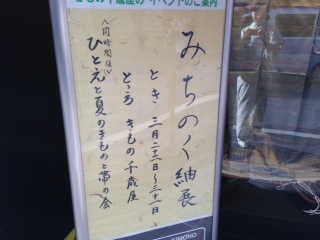 きもの千歳座の イベントのご案内
みちのく紬展
とき 三月二十二日〜三十一日
ところ きもの千歳屋
〈同時開催〉
ひとえと夏のきものと帯の会
KIMONO